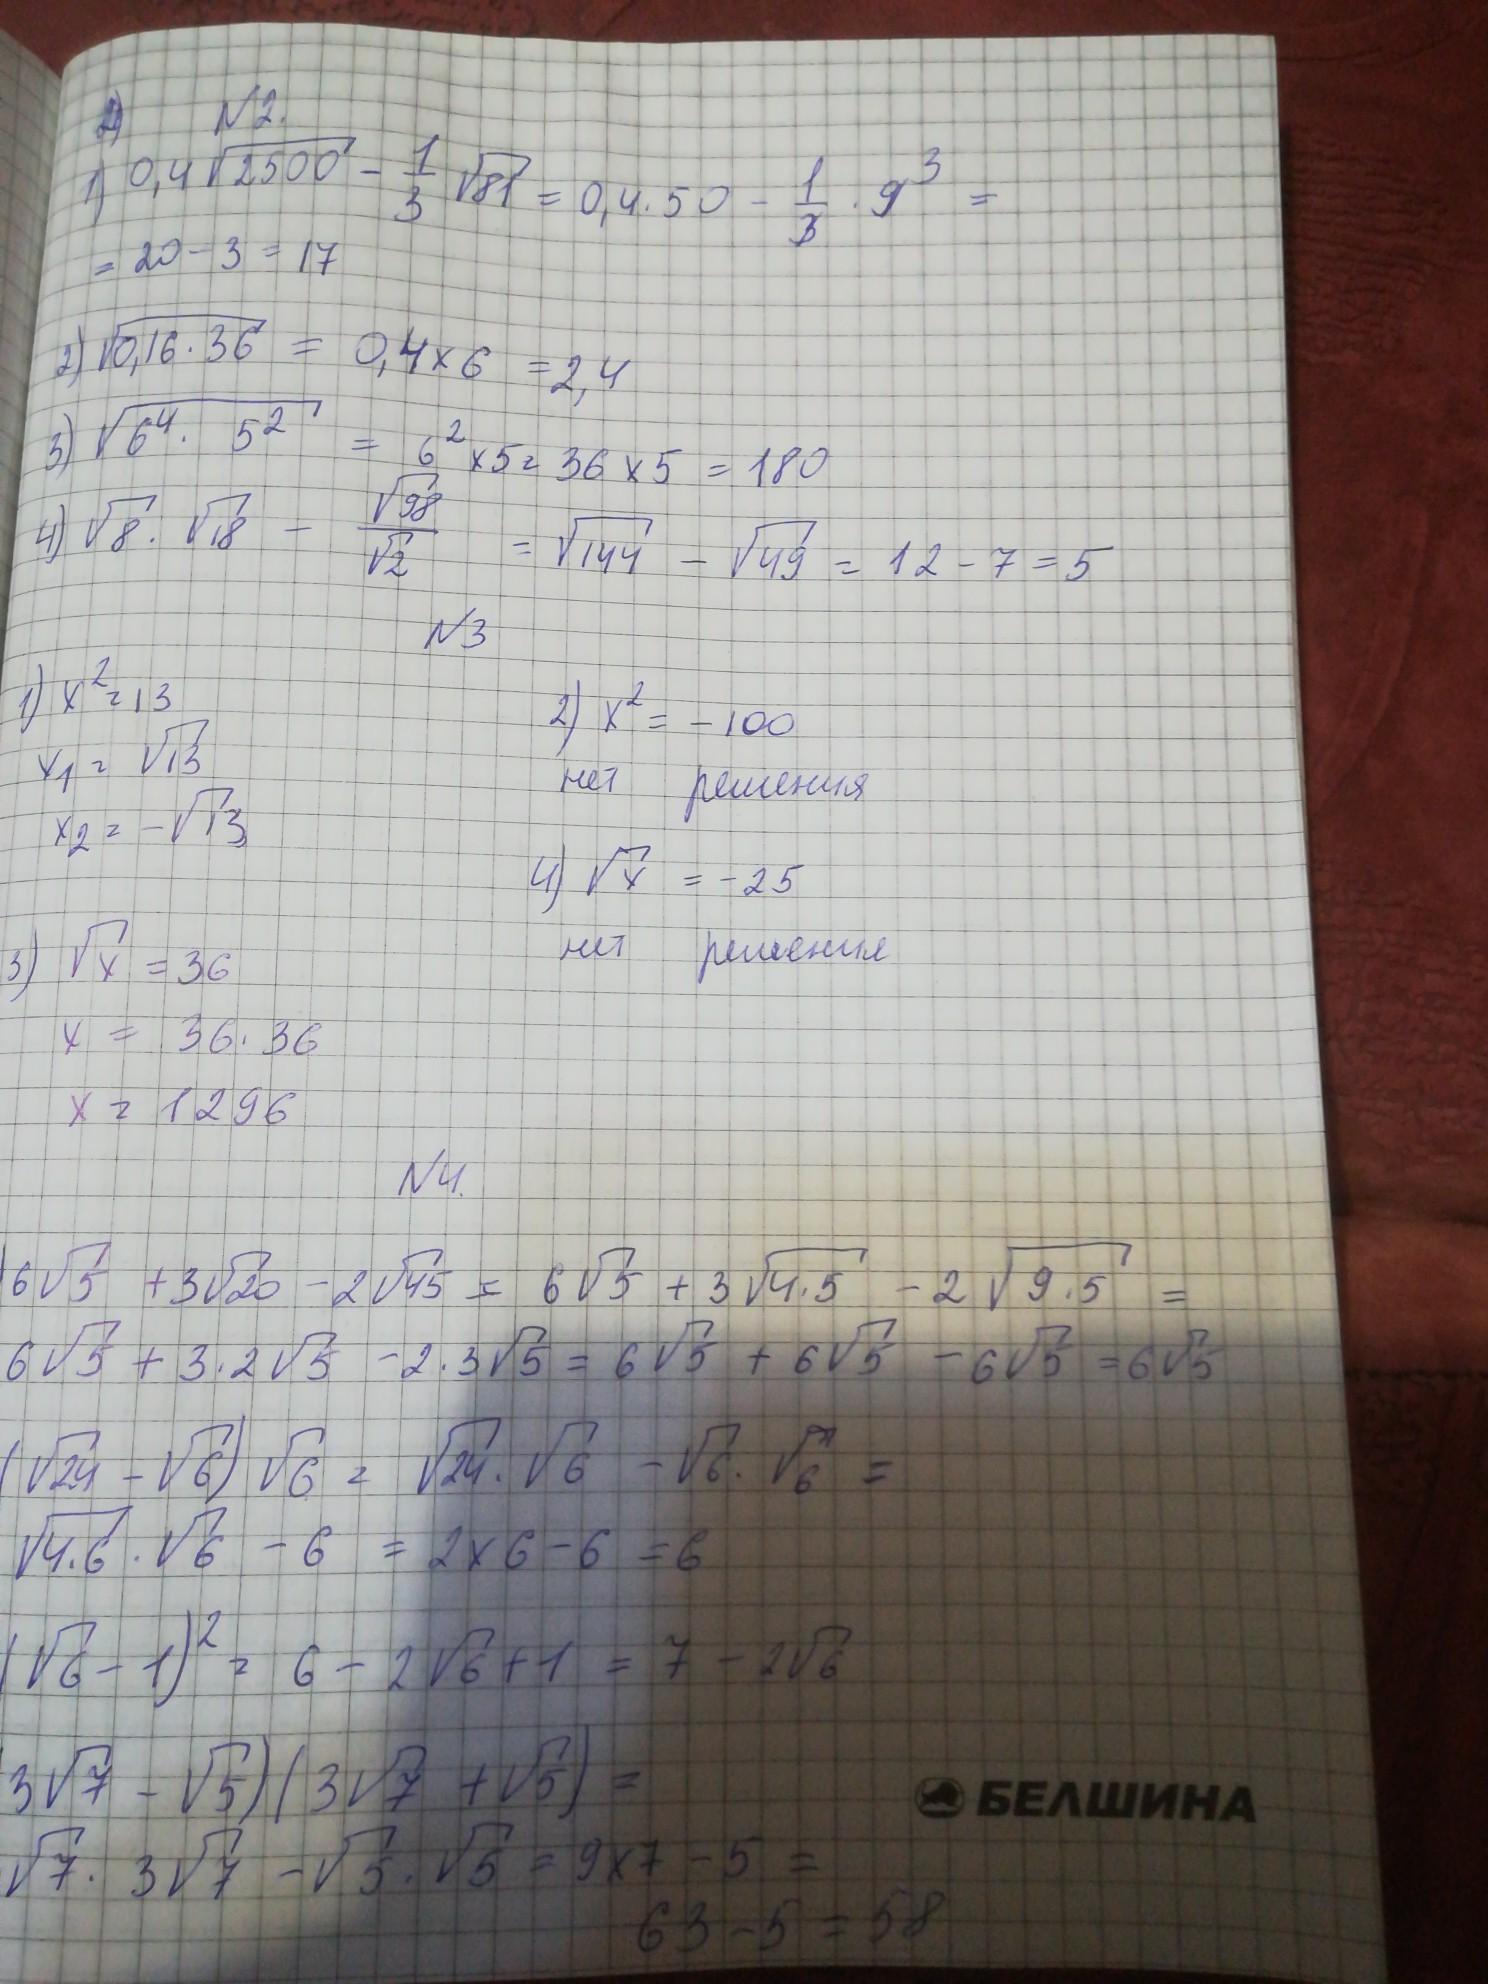 N2.
1) 0,4√2500 - 1/3 √81 = 0,4·50 - 1/3 · 9³ =
= 20 - 3 = 17
2) √0,16·36 = 0,4×6 = 2,4
3) √6⁴· 5² = 6² ×5 = 36 ×5 = 180
4) √8 · √18 - √98/√2 = √144 - √49 = 12 - 7 = 5
N3
1) x² = 13
x₁ = √13
x₂ = -√13
2) x² = -100
нет решения
3) √x = 36
x = 36·36
x = 1296
4) √x = -25
нет решения
N4.
6√5 + 3√20 - 2√45 = 6√5 + 3√4·5 - 2√9·5 =
6√5 + 3·2√5 - 2·3√5 = 6√5 + 6√5 - 6√5 = 6√5
(√24 - √6) √6 = √24 · √6 - √6 · √6 =
√4·6 · √6 - 6 = 2×6 - 6 = 6
(√6 - 1)² = 6 - 2√6 + 1 = 7 - 2√6
3√7 - √5)(3√7 + √5) =
√7 · 3√7 - √5 · √5 = 9×7 - 5 =
63 - 5 = 58
БЕЛШИНА